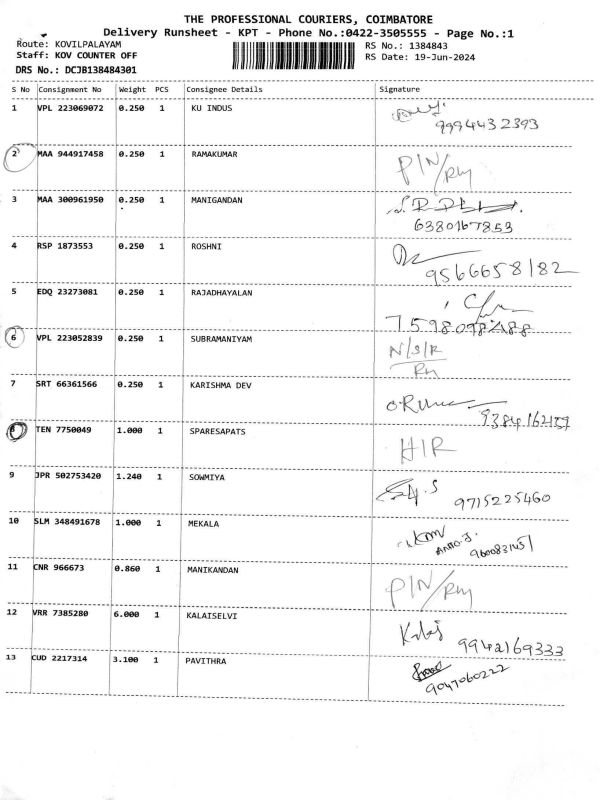 THE PROFESSIONAL COURIERS, COIMBATORE
Delivery Runsheet - KPT - Phone No.:0422-3505555 - Page No.:1
Route: KOVILPALAYAM RS No.: 1384843
Staff: KOV COUNTER OFF RS Date: 19-Jun-2024
DRS No.: DCJB138484301
S No Consignment No Weight PCS Consignee Details Signature
1 VPL 223069072 0.250 1 KU INDUS
9994432393
2 MAA 944917458 0.250 1 RAMAKUMAR P/N/RM
3 MAA 300961950 0.250 1 MANIGANDAN
6380167853
4 RSP 1873553 0.250 1 ROSHNI
9566658182
5 EDQ 23273081 0.250 1 RAJADHAYALAN
7598098488
6 VPL 223052839 0.250 1 SUBRAMANIYAM N/S/R
RM
7 SRT 66361566 0.250 1 KARISHMA DEV
8 TEN 7750049 1.000 1 SPARESAPATS H/R
9 JPR 502753420 1.240 1 SOWMIYA
9715225460
10 SLM 348491678 1.000 1 MEKALA
11 CNR 966673 0.860 1 MANIKANDAN P/N/RM
12 VRR 7385280 6.000 1 KALAISELVI Kalai
9942169333
13 CUD 2217314 3.100 1 PAVITHRA
9047060222